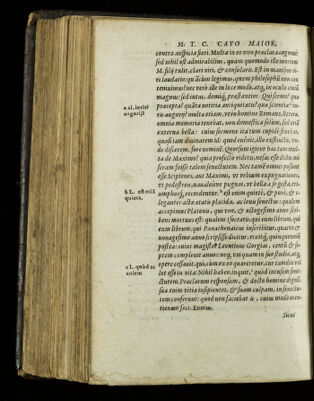 M. T. C. CATO MAIOR,
contra auspicia fieri. Multa in eo viro præclara cognovi:
sed nihil est admirabilius, quam quomodo ille mortem
M. filij tulit, clari viri, & consularis. Est in manibus
laudatio: quā cùm legimus, quem philosophū non con
temnimus? nec verò ille in luce modò, atq; in oculis civiū
magnus: sed intus, domiq; præstantior. Qui sermo? quæ
præcepta? quāta notitia antiquitatis? quæ scientia
iuris augurij? multæ etiam, vt in homine Romano, litteræ.
omnia memoria tenebat, non domestica solùm, sed etiā
externa bella: cuius sermone ita tum cupidè fruebar,
quasi iam divinarem id, quod evenit, illo exstincto,
vnde discerem, fore neminē. Quorsum igitur hæc tam mul
ta de Maximo? quia profectò videtis, nefas esse dictu,
miseram fuisse talem senectutem. Nec tamen omnes possunt
esse Scipiones, aut Maximi, vt vrbium expugnationes,
vt pedestres, navalésve pugnas, vt bella à se gesta,
triumphosq; recordentur. est etiam quietè, & purè, &
eleganter actæ ætatis placida, ac lenis senectus: qualem
accepimus Platonis, qui vno, & octogesimo anno scri-
bens mortuus est: qualem Isocratis, qui eum librum, qui
Panathenaicus inscribitur, quarto &
nonagesimo anno scripsisse dicitur, vixitq; quinquenniū
postea: cuius magister Leontinus Gorgias, centū & se-
ptem complevit annos: neq; vmquam in suo studio, atq;
opere cessavit. qui, cùm ex eo quæreretur, cur tamdiu vel
let esse in vita: Nihil habeo, inquit, quod incusem senectutem.
Præclarum responsum, & docto homine dignū.
sua enim vitia insipientes, & suam culpam, in senectutem
conferunt: quod non faciebat is, cuius modò mentionem
feci, Ennius,
Sicut
a al.
negocijs
b L. est etiā
quietæ,
c L. quòd ac
cusem